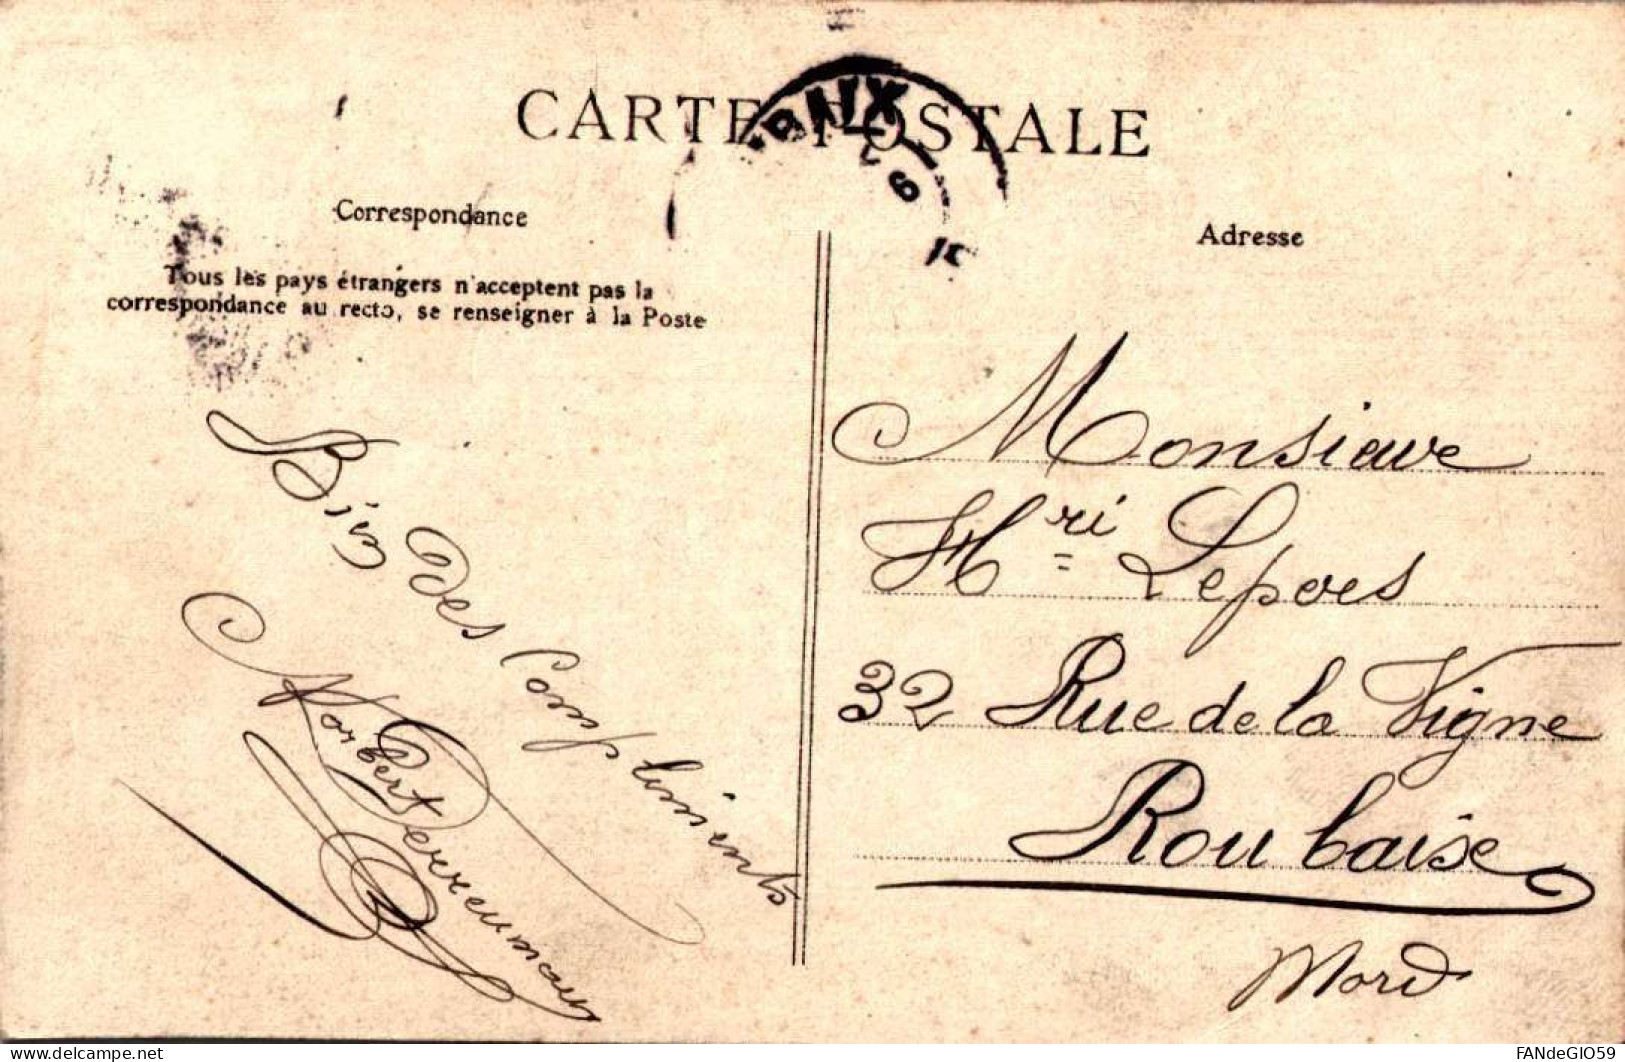 CARTE POSTALE
Correspondance
Tous les pays étrangers n'acceptent pas la
correspondance au recto, se renseigner à la Poste
Bien des Compliments
Norbert
Adresse
Monsieur
Hri Lepers
32 Rue de la Vigne
Roubaise
Nord
FANdeGIO59